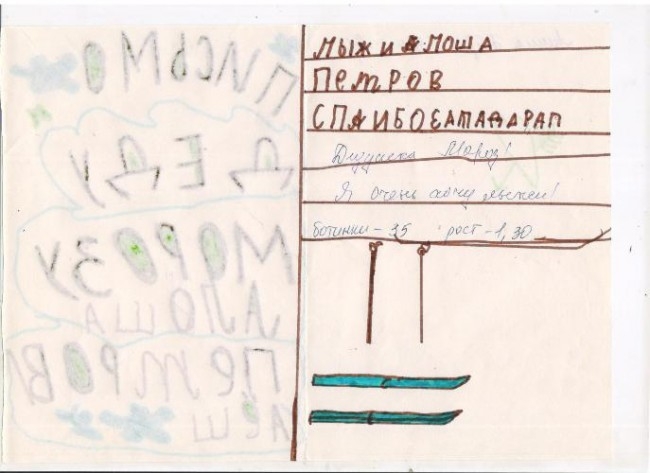 ПИСЬМО
ДЕДУ
МОРОЗУ
АЛОША
ПЕТРОВ
МЫЖИ АЛОША
ПЕТРОВ
СПАИБОЗАТАДАРАП
Дедушка Мороз!
Я очень хочу лыжи!
ботинки - 35 рост - 1,30